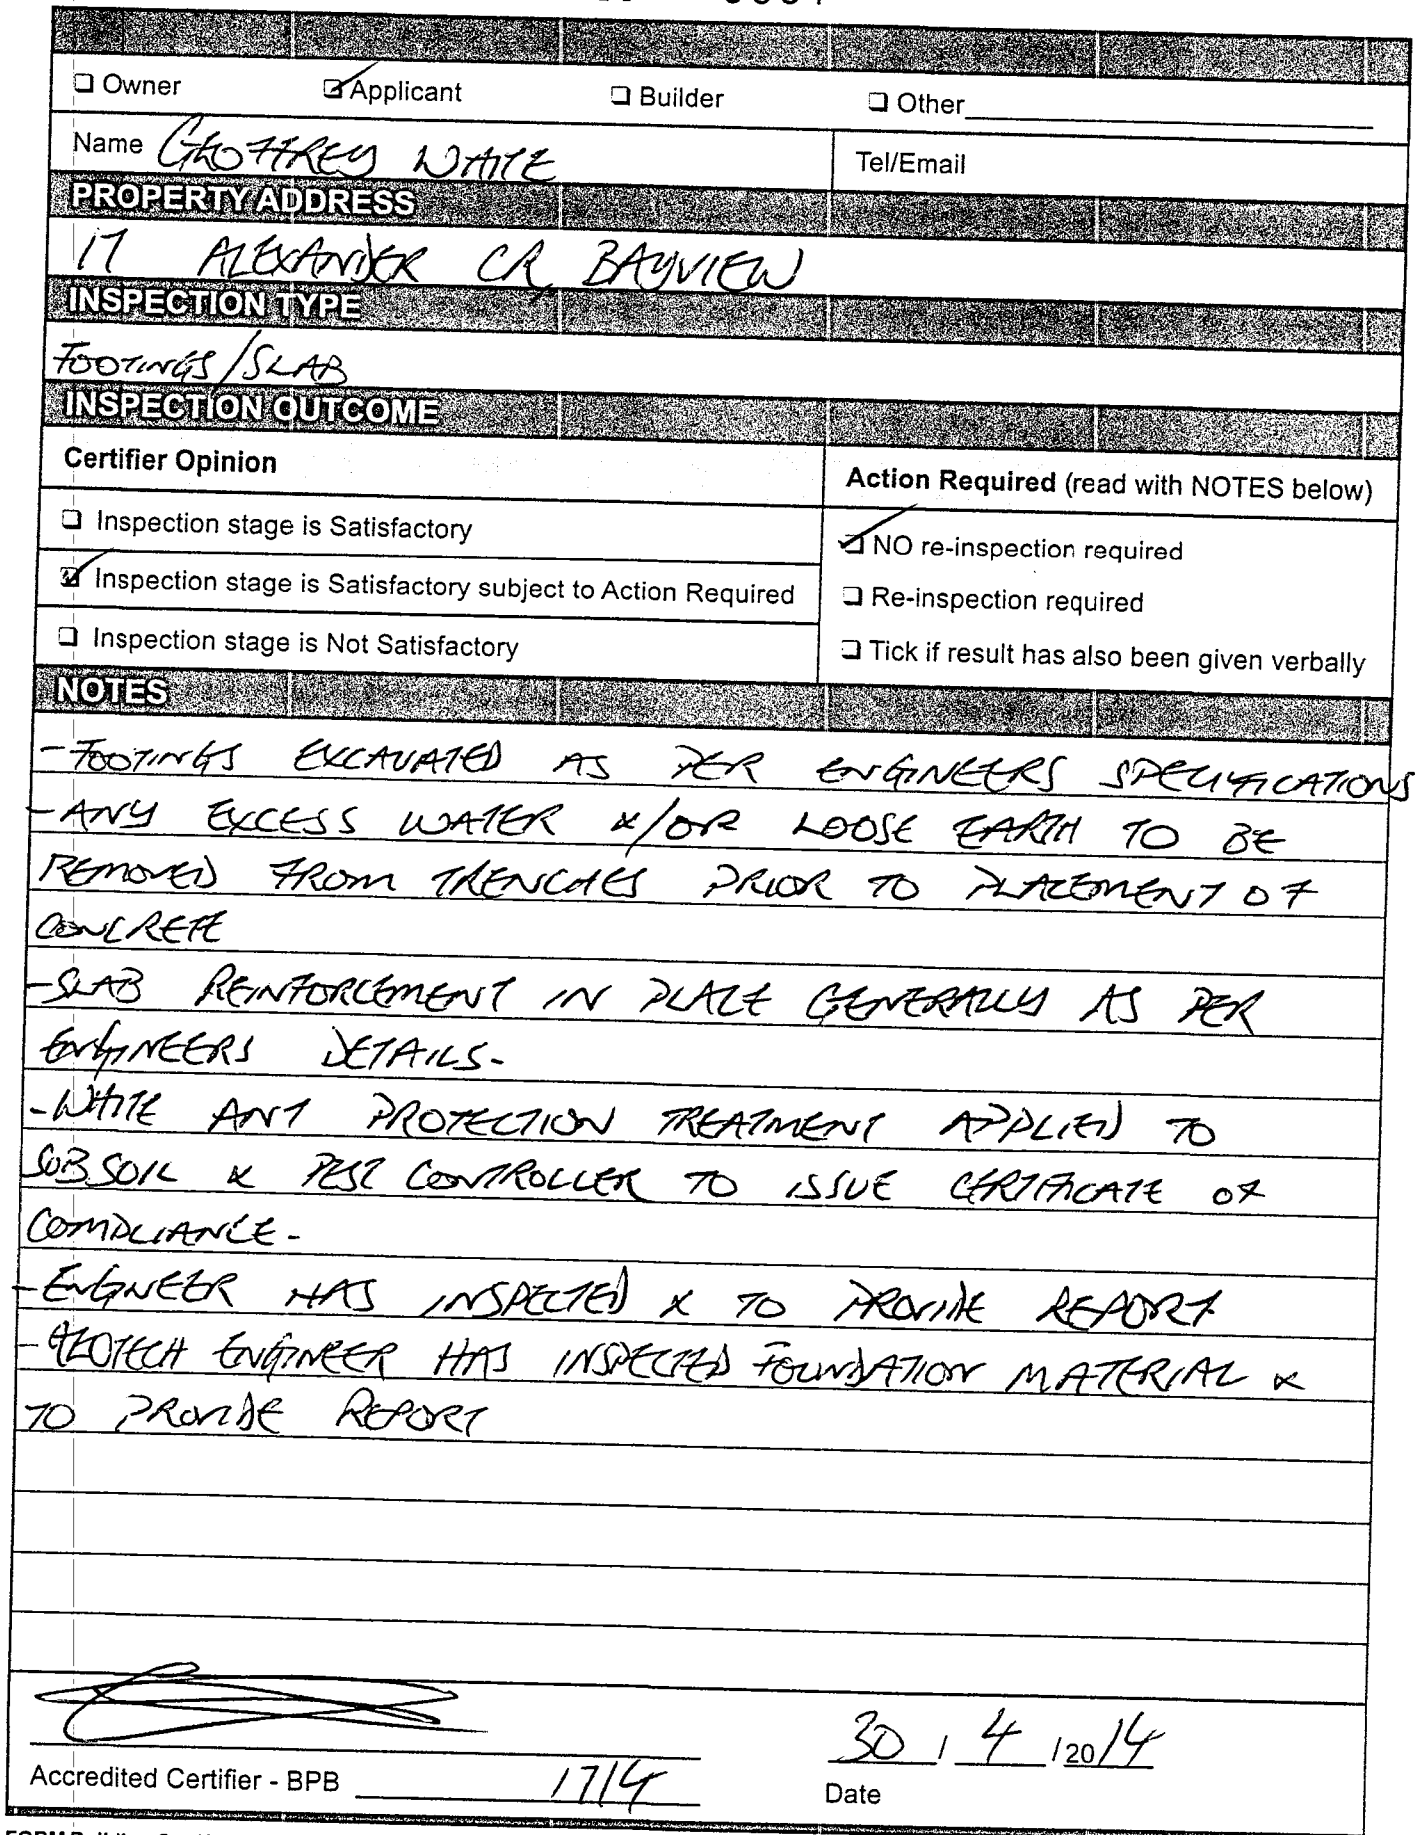 Owner Applicant Builder Other
Name GEOFFREY WHITE Tel/Email
PROPERTY ADDRESS
17 ALEXANDER CR, BAYVIEW
INSPECTION TYPE
FOOTINGS/SLAB
INSPECTION OUTCOME
Certifier Opinion
Action Required (read with NOTES below)
Inspection stage is Satisfactory
NO re-inspection required
Inspection stage is Satisfactory subject to Action Required
Re-inspection required
Inspection stage is Not Satisfactory
Tick if result has also been given verbally
NOTES
- FOOTINGS EXCAVATED AS PER ENGINEERS SPECIFICATIONS
- ANY EXCESS WATER &/OR LOOSE EARTH TO BE
REMOVED FROM TRENCHES PRIOR TO PLACEMENT OF
CONCRETE
- SLAB REINFORCEMENT IN PLACE GENERALLY AS PER
ENGINEERS DETAILS-
- WHITE ANT PROTECTION TREATMENT APPLIED TO
SUBSOIL & PEST CONTROLLER TO ISSUE CERTIFICATE OF
COMPLIANCE-
- ENGINEER HAS INSPECTED & TO PROVIDE REPORT
- GEOTECH ENGINEER HAS INSPECTED FOUNDATION MATERIAL &
TO PROVIDE REPORT
30 / 4 /2014
Accredited Certifier - BPB 1714
Date